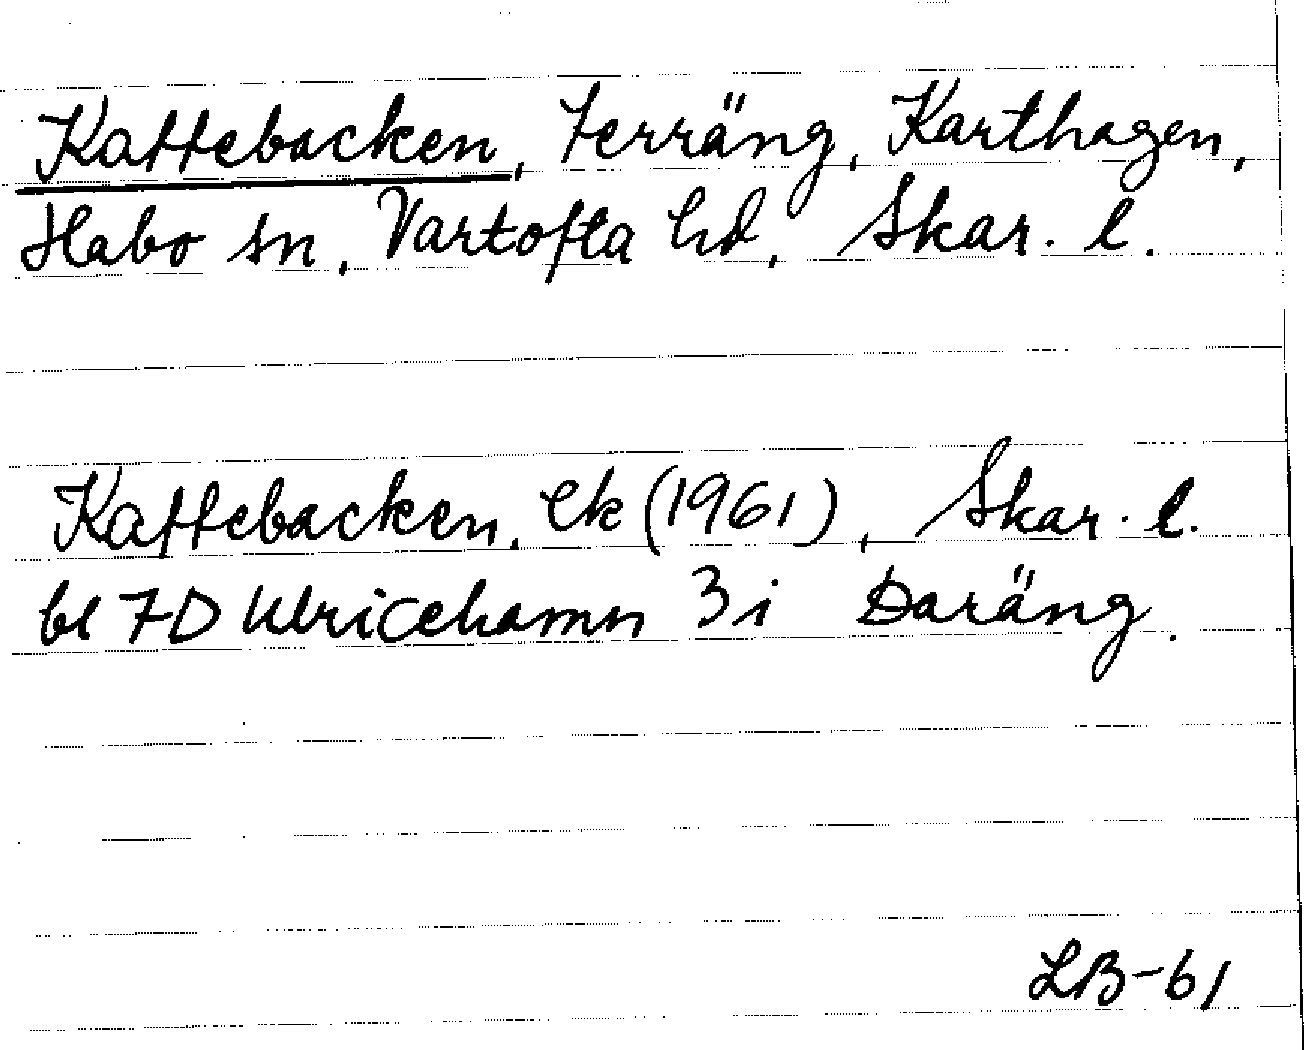 Kaffebacken, Terräng, Karthagen,
Habo sn, Vartofta hd, Skar. l.
Kaffebacken, Ek (1961), Skar. l.
bl 7D Ulricehamn 3i Daräng.
LB-61